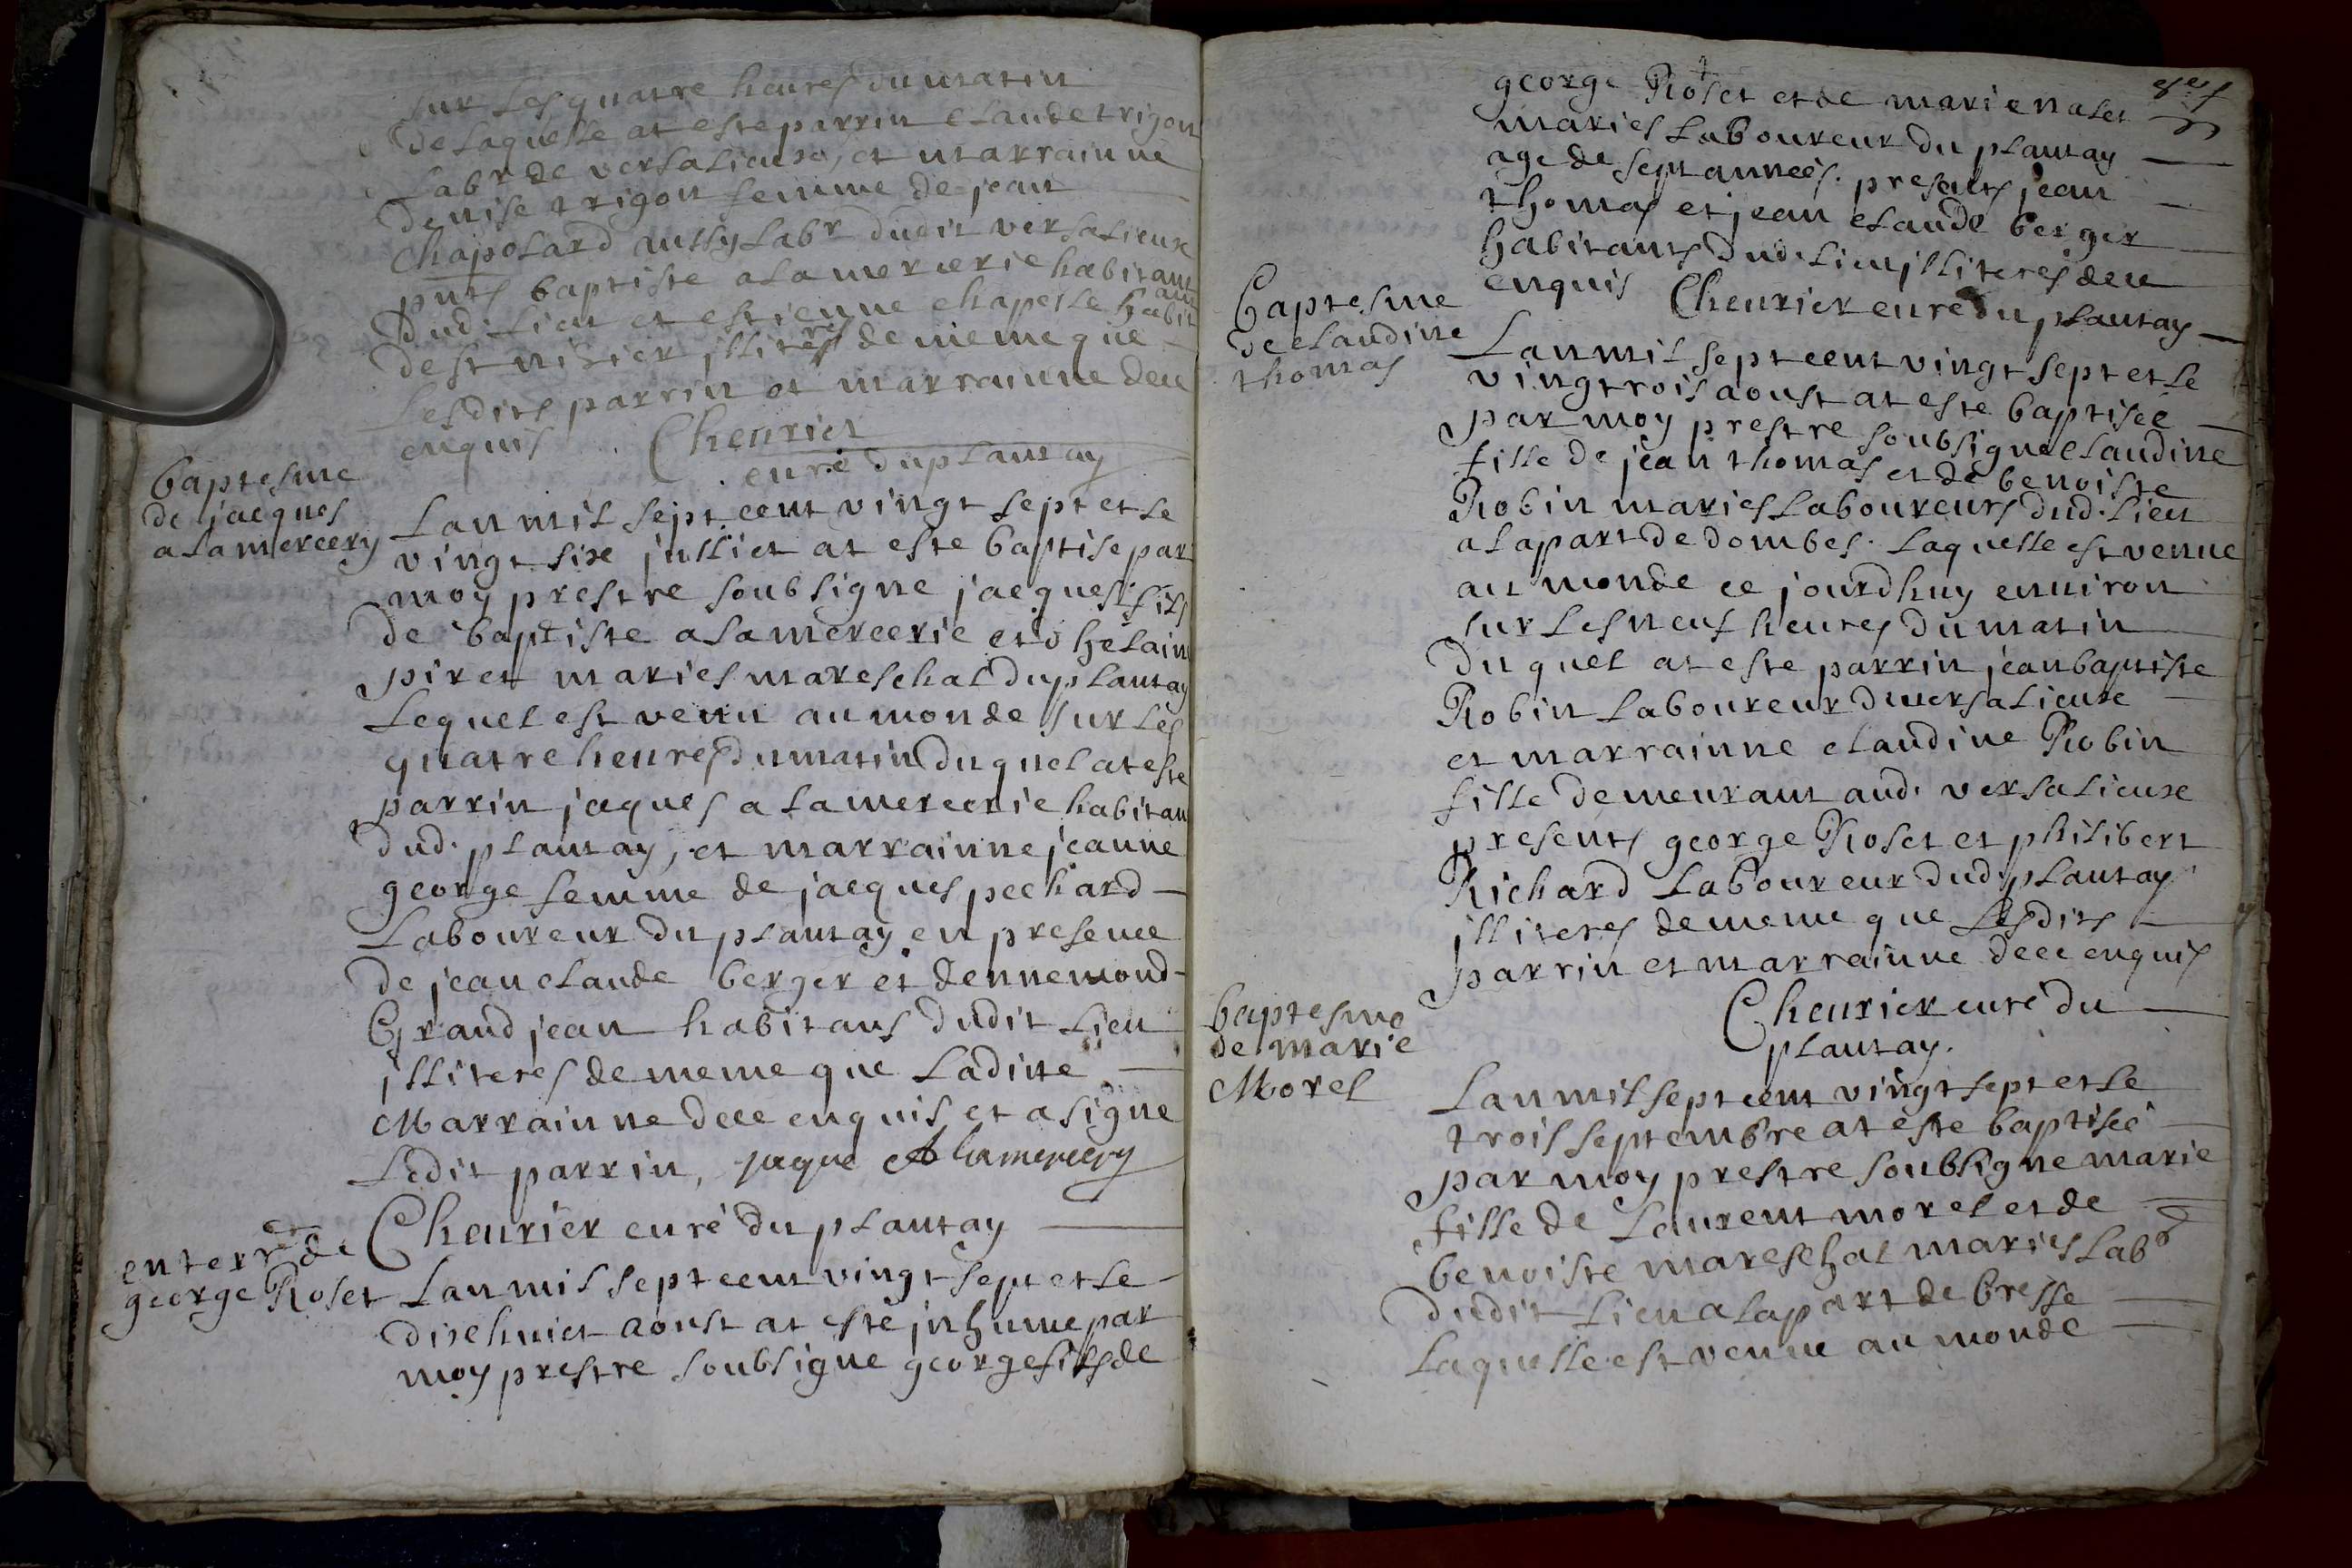 sur les quatre heures du matin
de laquelle at este parrin claude trigon
labr de versalieux, et marrainne
denise trigon femme de jean
chapolard aussy labr dudit versalieux
pnts baptiste alamercerie habitant
dud. lieu et estienne chapelle habitant
de st nizier illiteres de meme que
lesdits parrin et marrainne dece
enquis Cheurier
curé du plantay
baptesme
de jacques
alamercery
Lan mil sept cent vingt sept et le
vingt six jullict at este baptise par
moy prestre soubsigne jacques fils
de baptiste alamercerie et d helain
piret maries mareschal du plantay
Lequel est venu au monde sur les
quatre heures du matin duquel at este
parrin jaques alamercerie habitan
dud. plantay, et marrainne jeanne
george femme de jacques pechard
Laboureur du plantay en presence
de jean claude berger et dennemond
Grandjean habitans dudit lieu
illiteres de meme que ladite
Marrainne dece enquis et a signe
Ledit parrin, jaque Alamercery
Cheurier curé du plantay
enterrt de
george Roset
Lan mil sept cent vingt sept et le
dixhuict aoust at esté inhume par
moy prestre soubsigne george fils de
george Roset et de marie nalet
maries laboureur du plantay
age de sept années. presents jean
thomas et jean claude berger
habitants dud. lieu illiteres dece
enquis Cheurier curé du plantay
baptesme
de claudine
thomas
Lan mil sept cent vingt sept et le
vingtrois aoust at este baptisée
par moy prestre soubsigne claudine
fille de jean thomas et de benoiste
Robin maries laboureurs dud. lieu
a la part de dombes. laquelle est venue
au monde ce jourdhuy enuiron
sur les neuf heures du matin
du quel at este parrin jean baptiste
Robin laboureur de versalieux
et marrainne claudine Robin
fille demeurant aud. versalieux
presents george Roset et philibert
Richard laboureur dud. plantay
illiteres de meme que lesdits
parrin et marrainne dece enquis
Cheurier curé du
plantay.
baptesme
de marie
Morel
Lan mil sept cent vingt sept et le
trois septembre at este baptisée
par moy prestre soubsigne marie
fille de Laurent morel et de
benoiste mareschal maries labr
dudit lieu a la part de bresse
Laquelle est venue au monde